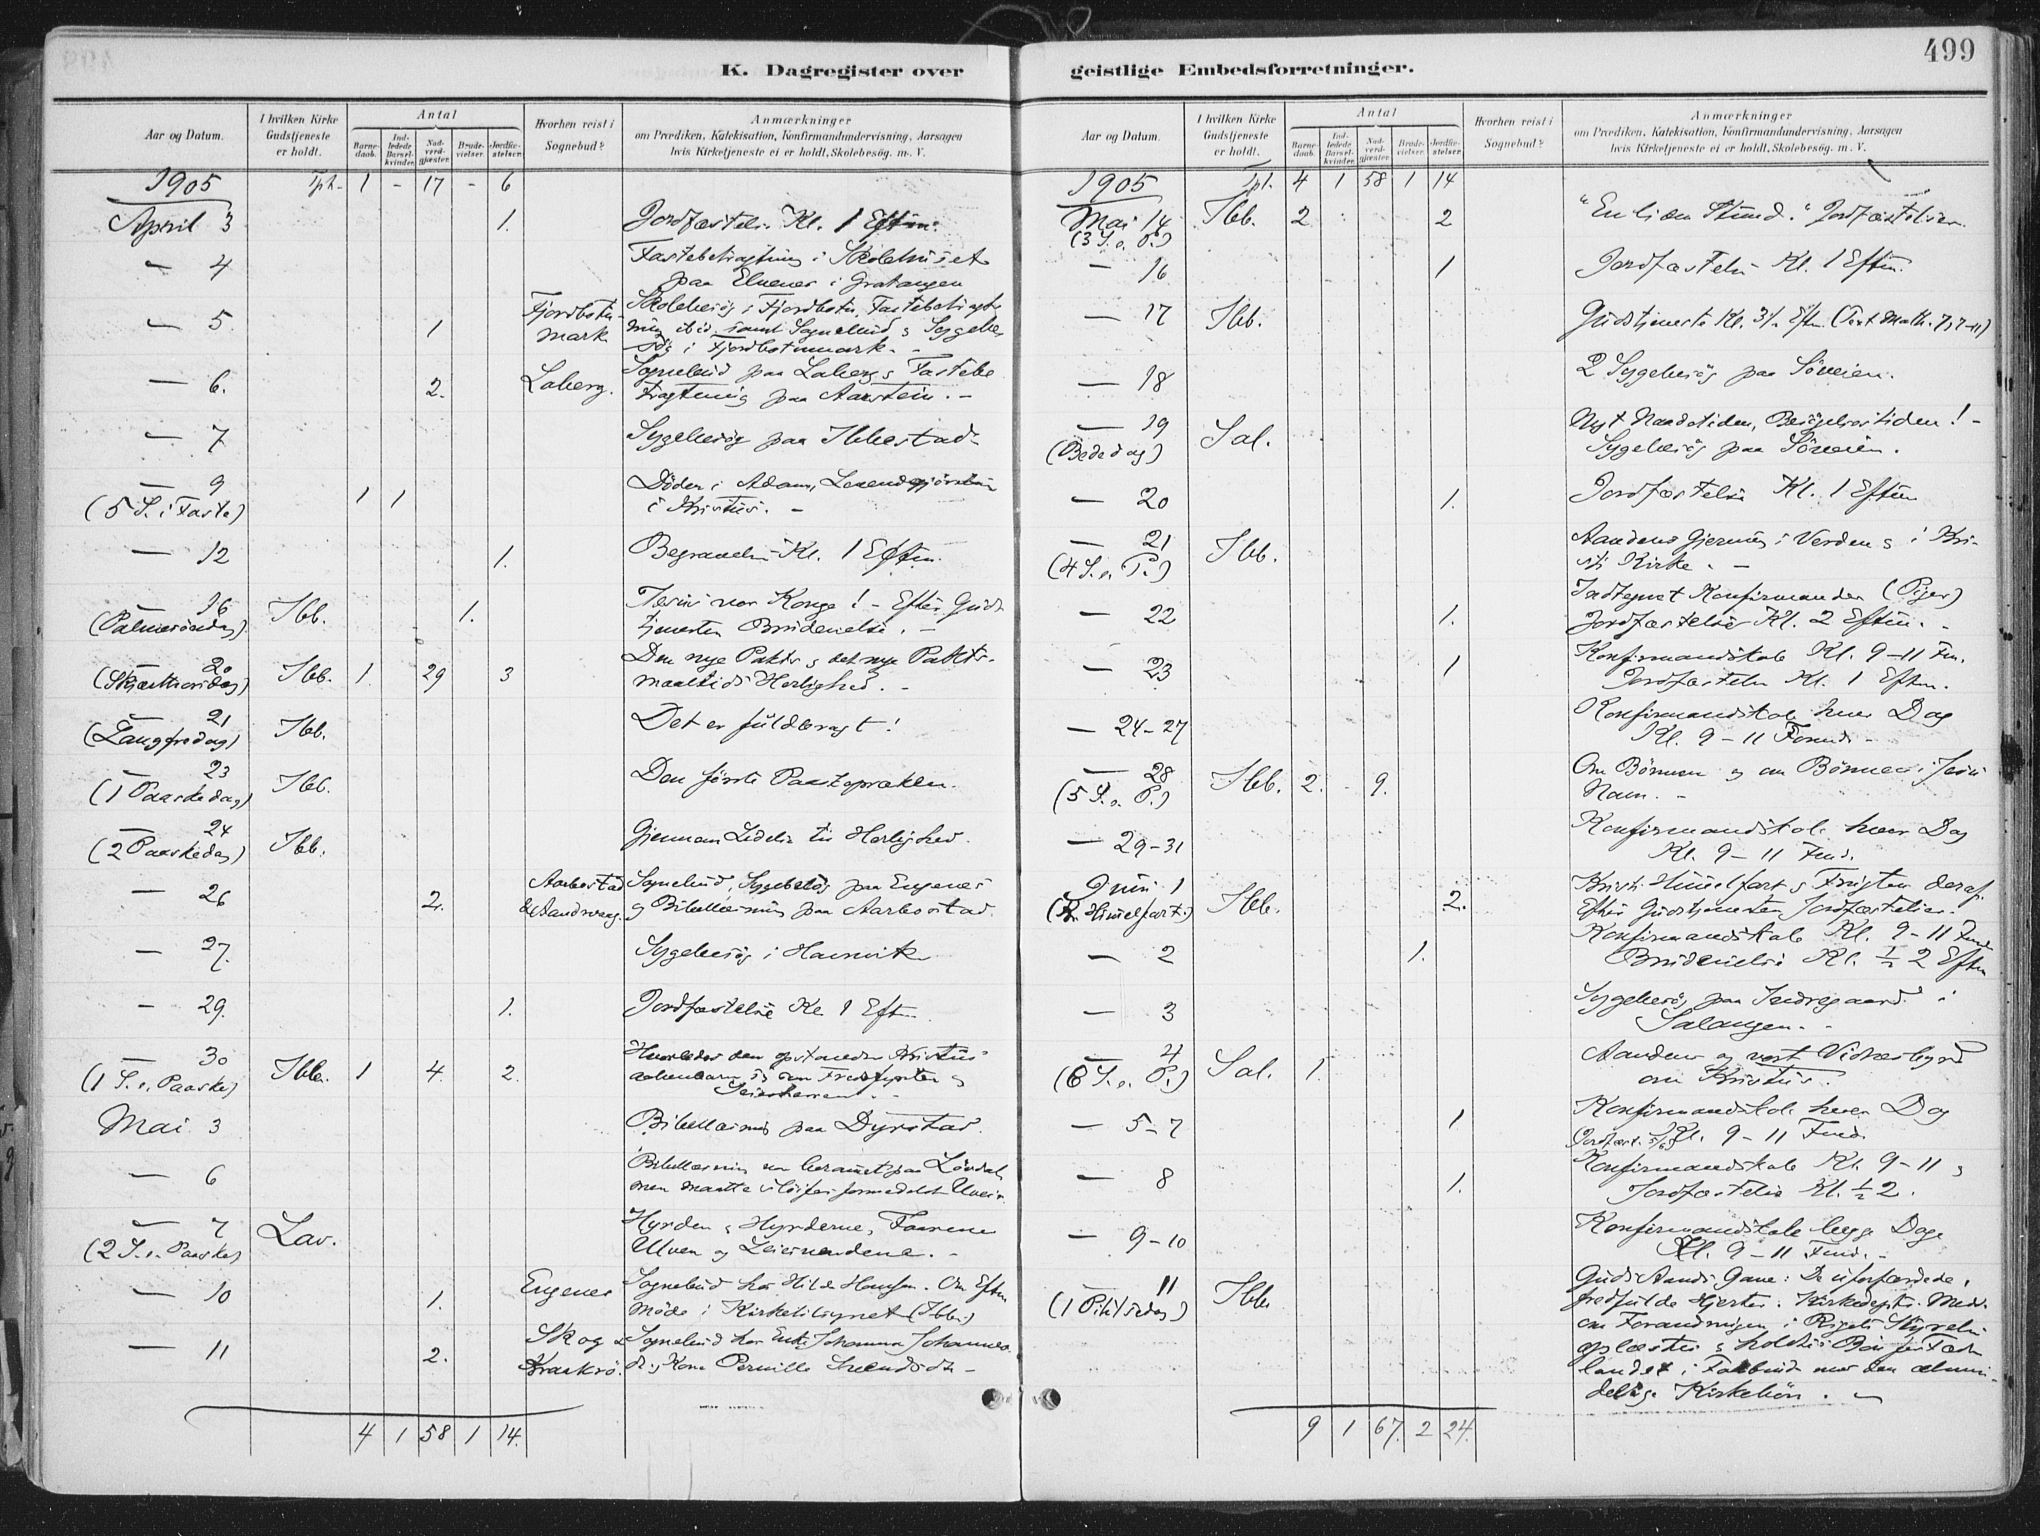 499
K. Dagregister over geistlige Embedsforretninger.
Aar og Datum.
I hvilken Kirke Gudstjeneste er holdt.
Antal
Barnedaab.
Indledede Barselkvinder.
Nadverdgjæster.
Brudevielser.
Jordfæstelser.
Hvorhen reist i Sognebud?
Anmærkninger
om Prædiken, Katekisation, Konfirmandundervisning, Aarsagen
hvis Kirketjeneste ei er holdt, Skolebesøg. m. V.
1905 1 - 17 - 6
April 3 1. Kl. 1 Eftm.
— 4 Fastebetragtning i Skolehuset
paa Elvenes i Gratangen
— 5. 1 Fjordbotn Skolebesög i Fjordbotn, Fastebetragt
mark ning ibid. samt Sognebud & Sygebe
sög i Fjordbotnmark. -
— 6. 2. Laberg. Sognebud paa Laberg & Fastebe
tragtning paa Aarstein. -
— 7 Sygebesög paa Ibbestad
— 9 1 1 Döden i Adam, Levendegjörelsen
(5 S. i Faste) i Kristus. -
— 12 1. Kl. 1 Eftm.
— 16 Ibb. 1. Jesus vor Konge! - Efter Guds
(Palmesöndag) tjenesten Brudevielse. -
— 20 Ibb. 1. 29 3 Den nye Pakts & det nye Pakts-
(Skjærthorsdag) maaltids Herlighed. -
— 21 Ibb. Det er fuldbragt!
(Langfredag)
— 23 Ibb. Den förste Paaskepræken.
(1 Paaskedag)
— 24 Ibb. Gjennem Lidelse til Herlighed.
(2 Paaskedag)
— 26 2. Aarbostad Sognebud, Sygebesög paa Engenes
og Bibellæsning paa Aarbostad.
— 27. Sygebesög i Hamnvik
— 29. 1. Jordfæstelse Kl 1 Eftm.
— 30 Ibb. 1 4. 2. Hvorledes den opstandne Kristus
(1 S. e. Paaske) aabenbarer sig som Fredsfyrsten og
Seiersherren. -
Mai 3 Bibellæsning paa Dyrstad.
— 6 Bibellæsning var berammet paa Lövdal
men maatte
— 7 Lav. Hyrden & Hyrderne, Faarene
(2 S. e. Paaske) Ulven og Leiesvendene. -
— 10 1. Engenes Sognebud hos Hilda Hansen. Om Eftm
Möde i Kirketilsynet (Ibb.)
— 11 2. Skog & Sognebud hos Enke Johanna Johannes
Kraakrö. dt. & Kone Pernille -
4 1 58 1 14.
Aar og Datum.
I hvilken Kirke Gudstjeneste er holdt.
Antal
Barnedaab.
Indledede Barselkvinder.
Nadverdgjæster.
Brudevielser.
Jordfæstelser.
Hvorhen reist i Sognebud?
Anmærkninger
om Prædiken, Katekisation, Konfirmandundervisning, Aarsagen
hvis Kirketjeneste ei er holdt, Skolebesög. m. V.
1905 4 1 58 1 14
Mai 14 Ibb. 2 2 "En liden Stund." Jordfæstelser.
(3 S. e. P.)
— 16 1 Jordfæstelse Kl. 1 Eftm.
— 17 Ibb. Gudstjeneste Kl. 3½ Eftm. (Text Math. 7, 7-11)
— 18 2 Sygebesög paa Söveien.
— 19 Sal. Nyt Naadetiden, Besögelsestiden! -
(Bededag) Sygebesög paa Söveien.
— 20 1. Jordfæstelse Kl. 1 Eftm
— 21 Ibb. Aandens Gjerning i Verden & i Kri-
(4 S. e. P.) sti Kirke. -
— 22 1. Indtegnet Konfirmander (Piger)
Jordfæstelse Kl. 2 Eftm. -
— 23 1 Konfirmandskole Kl. 9-11 Fm.
Jordfæstelse Kl. 1 Eftm.
— 24-27 Konfirmandskole hver Dag
Kl. 9-11 Formd. -
— 28 Ibb. 2. - 9. Om Bönnen og om Bönnen i Jesu
(5 S. e. P.) Navn. -
— 29-31 Konfirmandskole hver Dag
Kl. 9-11 Fmd.
Juni 1 Ibb. 2. Kristi Himmelfart & Frugten deraf.
(Kr. Himmelfart.) Efter Gudstjenesten Jordfæstelser.
— 2 1. Konfirmandskole Kl. 9-11 Fmd
Brudevielse Kl. ½ 2 Eftm
— 3 Sygebesög paa Indregaard i
Salangen. -
— 4 Sal. 1. Aandens og vort Vidnesbyrd
(6 S. e. P.) om Kristus.
— 5-7 1 Konfirmandskole hver Dag
Jordfæst. 5/6 Kl. 9-11 Fmd.
— 8 1. Konfirmandskole Kl. 9-11 &
Jordfæstelse Kl. ½ 2.
— 9-10 Konfirmandskole begge Dage
Kl. 9-11 Fmd. -
— 11 Ibb. Guds Aands Gave: De uforfærdede,
(1 Pintsedag) fredfulde Hjerter. Kirkedepts. Medd.
om Forandringen i Rigets Styrelse
oplæstes & holdtes Bön for Fædre
landet i Forbind med den almin-
delige Kirkebön. -
9 1 67. 2 24.